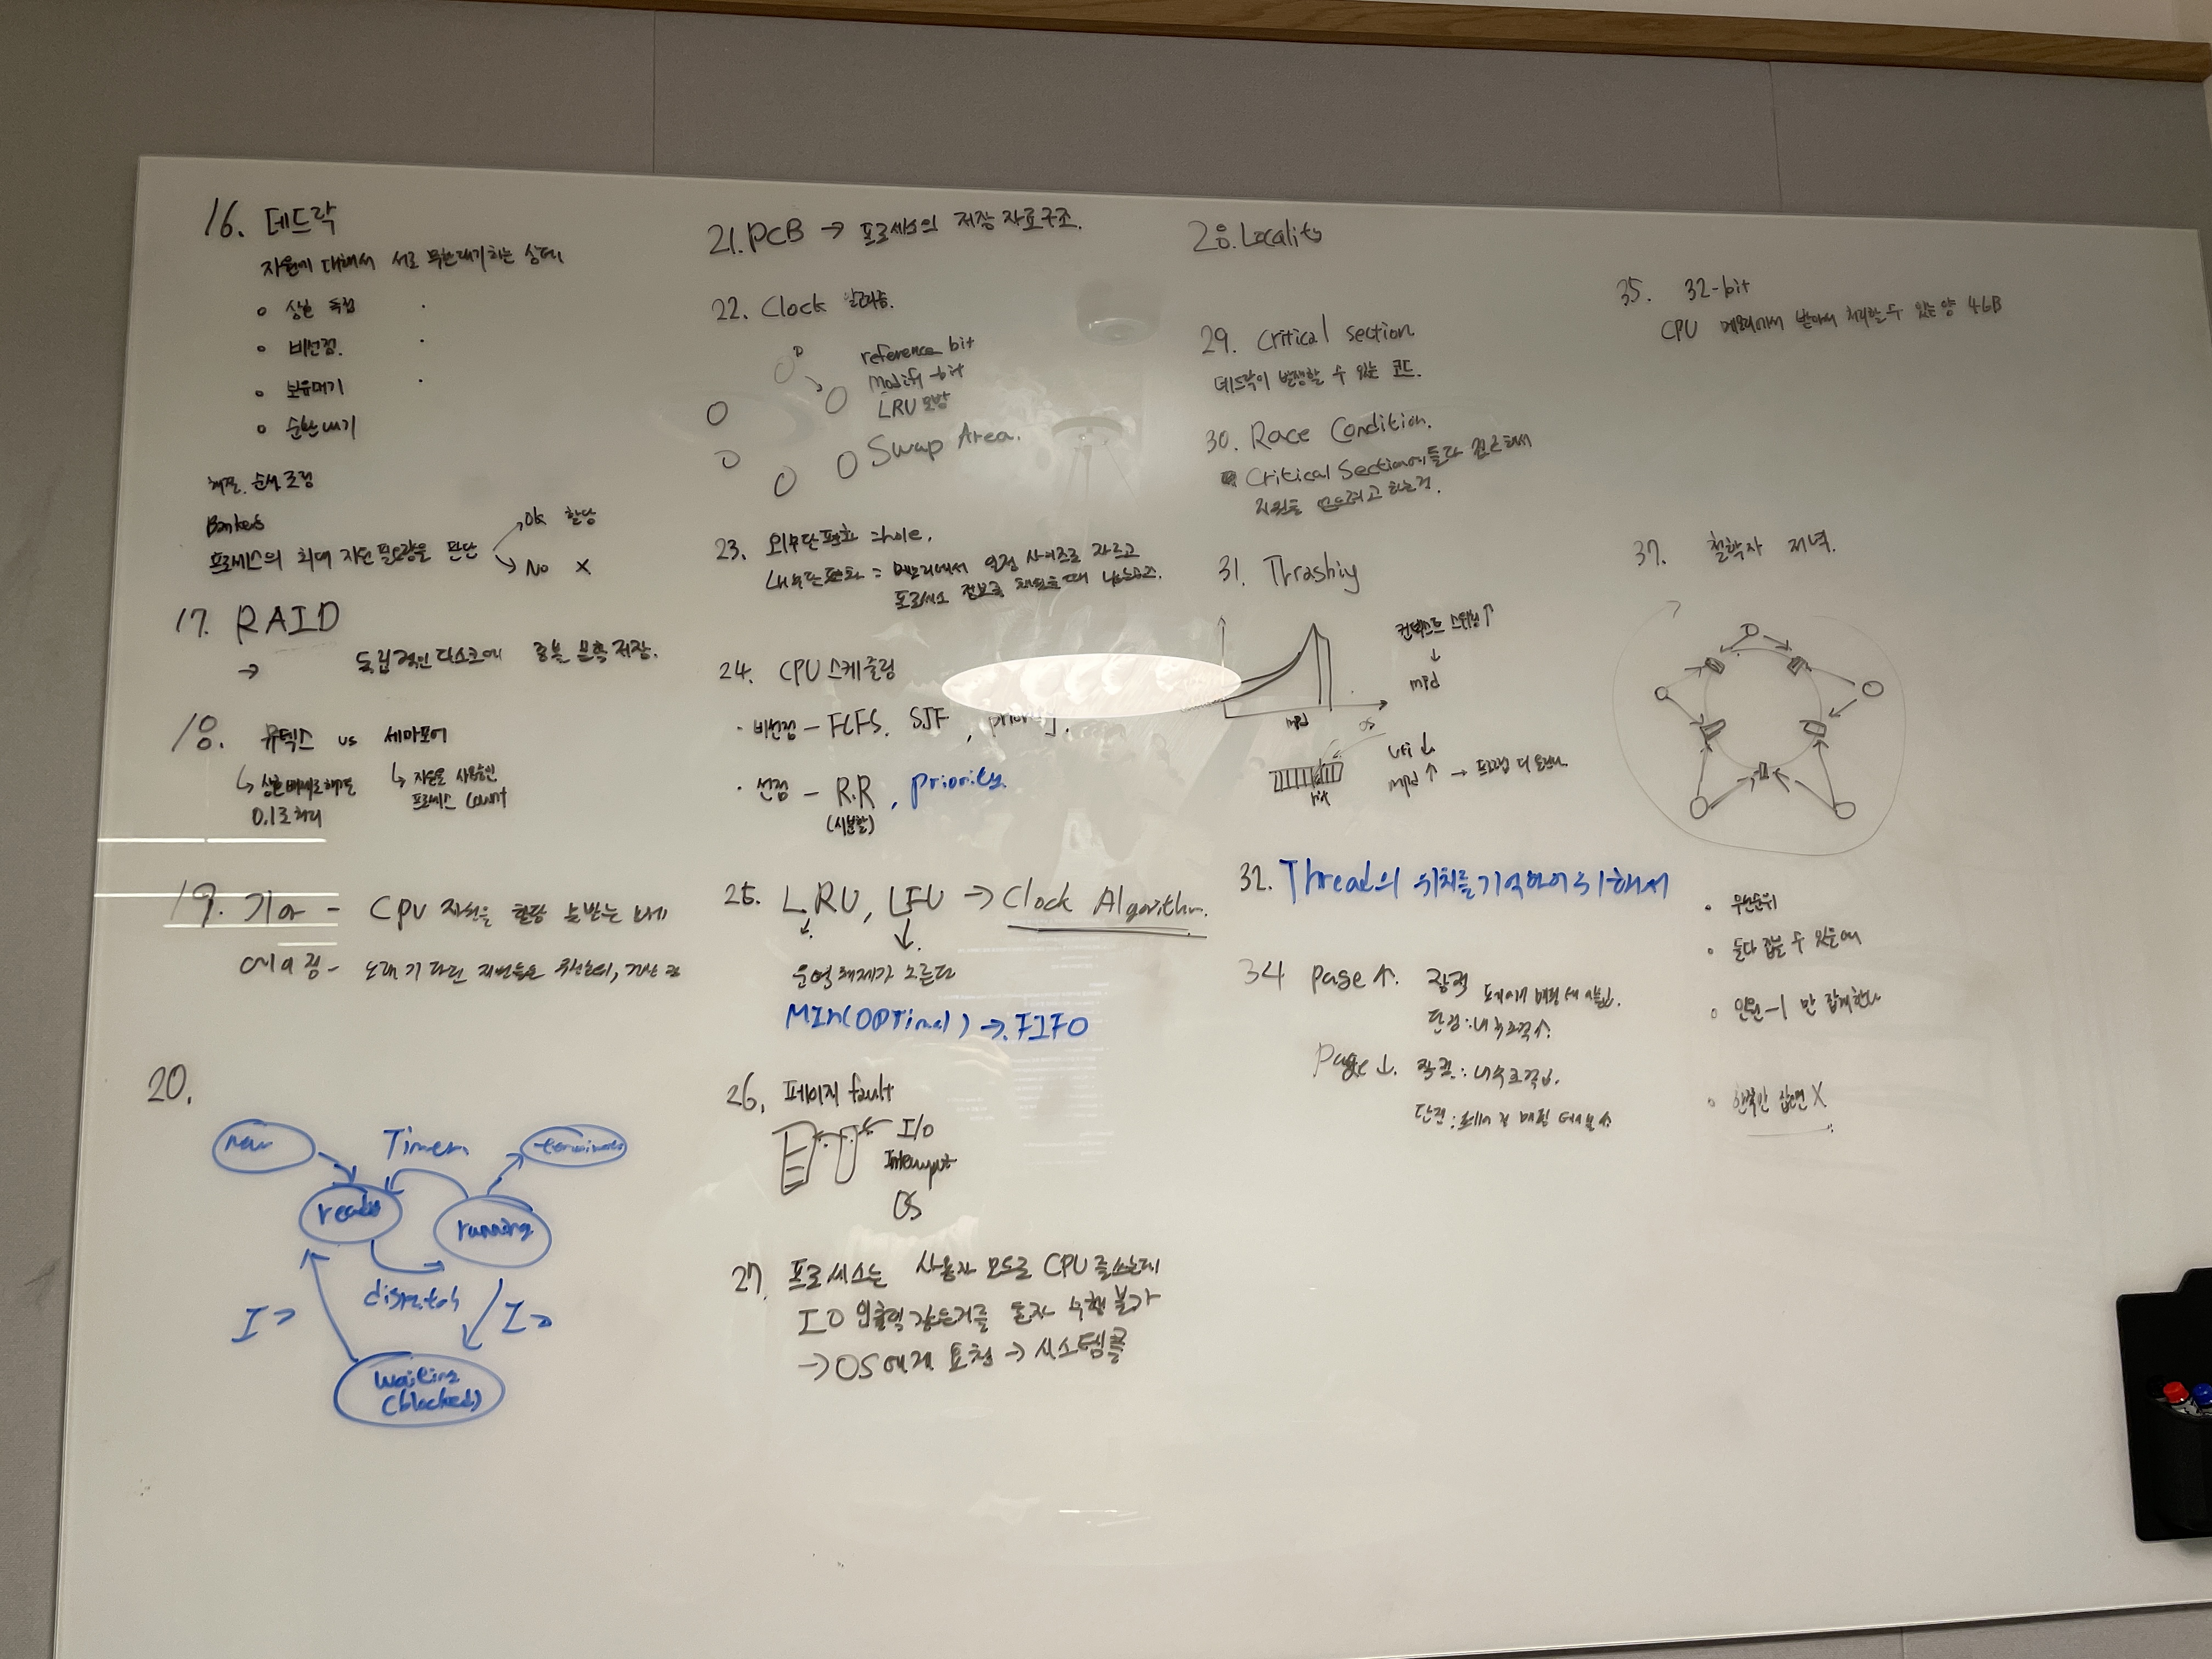 16. 데드락
자원에 대해서 서로 무한대기하는 상태
상호 독점
비선점.
보유대기
순환대기
해결. 순서 조정
Bankers
프로세스의 최대 자원 필요량을 판단
OK 할당
No X
17. RAID
→ 독립적인 디스크에 중복 분할 저장.
18. 뮤텍스 vs 세마포어
상호배제
0,1로 처리
자원을 사용중인
프로세스 count
19. 기아 - CPU 자원을 할당 못받는
에이징 - 오래 기다린
20.
new
Timer
ready
running
dispatch
waiting
(blocked)
21. PCB → 프로세스의 저장 자료구조.
22. Clock 알고리즘.
reference bit
modify bit
LRU 모방
Swap Area.
23. 외부단편화 = hole.
내부단편화 = 메모리에서 일정 사이즈로 자르고
프로세스
24. CPU 스케줄링
· 비선점 - FCFS, SJF, priority.
· 선점 - R.R, priority.
(시분할)
25. LRU, LFU → Clock Algorithm.
운영체제가 모른다
MIN(OPTimal) → FIFO
26. 페이지 fault
I/O
Interrupt
OS
27. 프로세스는 사용자 모드로 CPU를 쓰는데
IO 입출력 같은거를 혼자 수행 불가
→ OS에게 요청 → 시스템콜
28. Locality
29. Critical section
데드락이 발생할 수 있는 코드.
30. Race Condition.
Critical Section에 둘다 접근해서
자원을 하는것.
31. Thrashing
컨텍스트 스위칭 ↑
↓
mpd
mpd
OS
uti ↓
mpd ↑ →
32. Thread의 위치를 기억하기 위해서
34 page ↑. 장점
단점 : 내부조각 ↑.
Page ↓. 장점 : 내부조각 ↓.
단점 : 페이지 매핑 테이블 ↑
35. 32-bit
CPU 메모리에서 받아서 처리할 수 있는 양 4GB
37. 철학자 저녁.
우선순위
둘다 집을 수 있을때
인원-1 만
한쪽만 잡으면 X